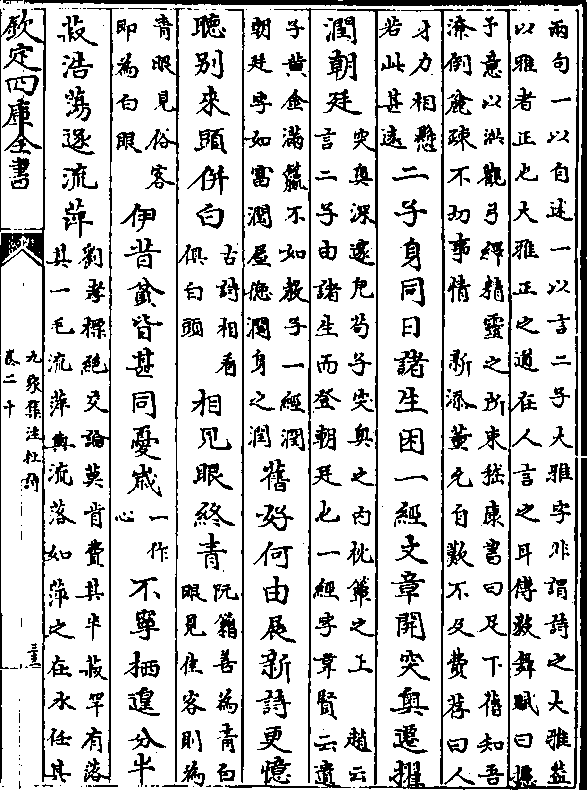 兩句一以自述一以言二子大雅字非謂詩之大雅盖
以雅者正也大雅正之道在人言之耳傅毅舞賦曰攄
予意以洪觀弓繹精靈之所束嵇康書曰足下舊知吾
潦倒麄疎不切事情 新添董允自歎不及費禕曰人
才力相懸
若此甚遠
二子身同日諸生困一經文章開突奥遷擢
潤朝廷
突奥深邃皃荀子突奥之内枕簟之上 趙云
言二子由諸生而登朝廷也一經字韋賢云遺
子黄金滿籯不如教子一經潤
朝廷字如富潤屋德潤身之潤
舊好何由展新詩更憶
聽别來頭併白
古詩相看
俱白頭
相見眼終青
阮籍善為青白
眼見佳客則為
青眼見俗客
即為白眼
伊昔貧皆甚同憂嵗
一作
心
不寧栖遑分半
菽浩蕩逐流萍
劉孝標絶交論莫肯費其半菽罕有落
其一毛流萍與流落如萍之在水任其
欽定四庫全書
九家集注杜詩
卷二十